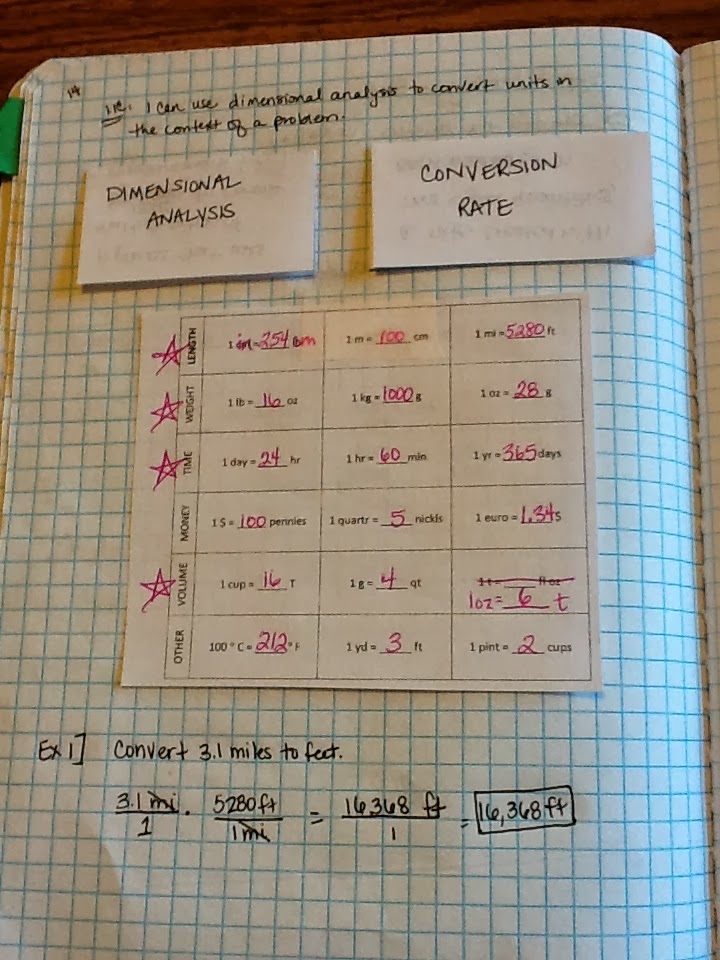 14
I can use dimensional analysis to convert units in
the context of a problem.
DIMENSIONAL
ANALYSIS
CONVERSION
RATE
LENGTH
1 in = 254 cm
1 m = 100 cm
1 mi = 5280 ft
WEIGHT
1 lb = 16 oz
1 kg = 1000 g
1 oz = 28 g
TIME
1 day = 24 hr
1 hr = 60 min
1 yr = 365 days
MONEY
1 $ = 100 pennies
1 quartr = 5 nickls
1 euro = 1.34 $
VOLUME
1 cup = 16 T
1 g = 4 qt
1 oz = 6 t
OTHER
100 ° C = 212 ° F
1 yd = 3 ft
1 pint = 2 cups
Ex 1] Convert 3.1 miles to feet.
3.1 mi / 1 · 5280 ft / 1 mi = 16368 ft / 1 = 16,368 ft